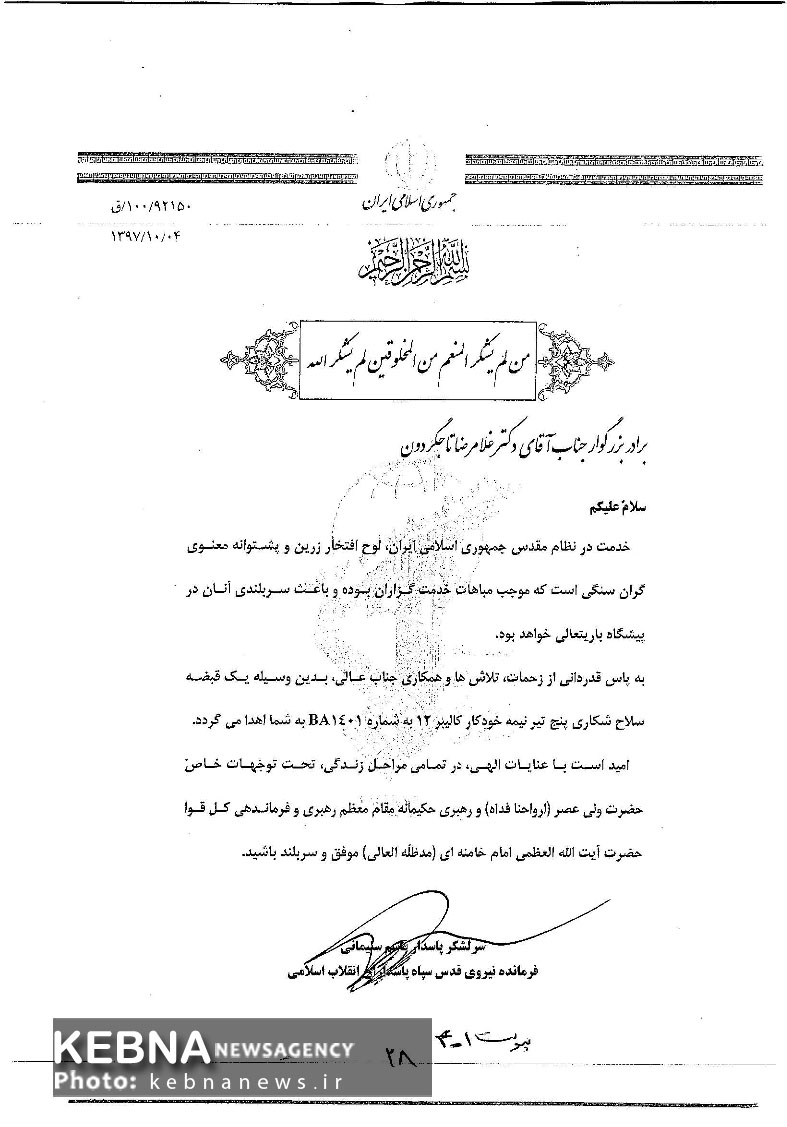 جمهوری اسلامی ایران
۱۰۰/۹۲۱۵۰/ق
۱۳۹۷/۱۰/۰۴
بسم الله الرحمن الرحیم
من لم یشکر المنعم من المخلوقین لم یشکر الله
برادر بزرگوار جناب آقای دکتر غلامرضا تاجگردون
سلام علیکم
خدمت در نظام مقدس جمهوری اسلامی ایران، لوح افتخار زرین و پشتوانه معنوی
گران سنگی است که موجب مباهات خدمت گزاران بوده و باعث سربلندی آنان در
پیشگاه باریتعالی خواهد بود.
به پاس قدردانی از زحمات، تلاش ها و همکاری جناب عالی، بدین وسیله یک قبضه
سلاح شکاری پنج تیر نیمه خودکار کالیبر ۱۲ به شماره BA۱٤۰۱ به شما اهدا می گردد.
امید است با عنایات الهی، در تمامی مراحل زندگی، تحت توجهات خاص
حضرت ولی عصر (ارواحنا فداه) و رهبری حکیمانه مقام معظم رهبری و فرماندهی کل قوا
حضرت آیت الله العظمی امام خامنه ای (مدظله العالی) موفق و سربلند باشید.
سرلشکر پاسدار قاسم سلیمانی
فرمانده نیروی قدس سپاه پاسداران انقلاب اسلامی
پیوست ۱-۴
۲۸
KEBNA NEWSAGENCY
Photo: kebnanews.ir